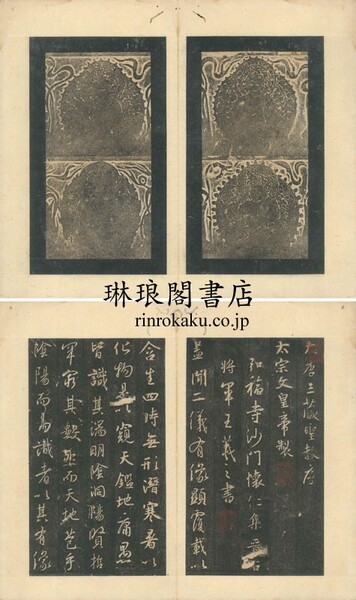 琳琅閣書店
rinrokaku.co.jp
大唐三藏聖教序
太宗文皇帝製
弘福寺沙門懷仁集晉右
將軍王羲之書
蓋聞二儀有像顯覆載以
含生四時無形潛寒暑以
化物是以窺天鑑地庸愚
皆識其端明陰洞陽賢哲
罕窮其數然而天地苞乎
陰陽而易識者以其有像